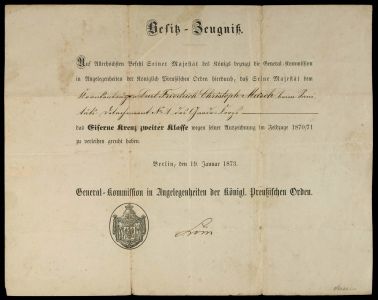 Besitz-Zeugniß.
Auf Allerhöchsten Befehl Seiner Majestät des Königs bezeugt die General-Kommission
in Angelegenheiten der Königlich Preußischen Orden hierdurch, daß Seine Majestät dem
Carl Friedrich Christoph
Detachement No 1 des Garde Corps
das Eiserne Kreuz zweiter Klasse wegen seiner Auszeichnung im Feldzuge 1870/71
zu verleihen geruht haben.
Berlin, den 19. Januar 1873.
General-Kommission in Angelegenheiten der Königl. Preußischen Orden.